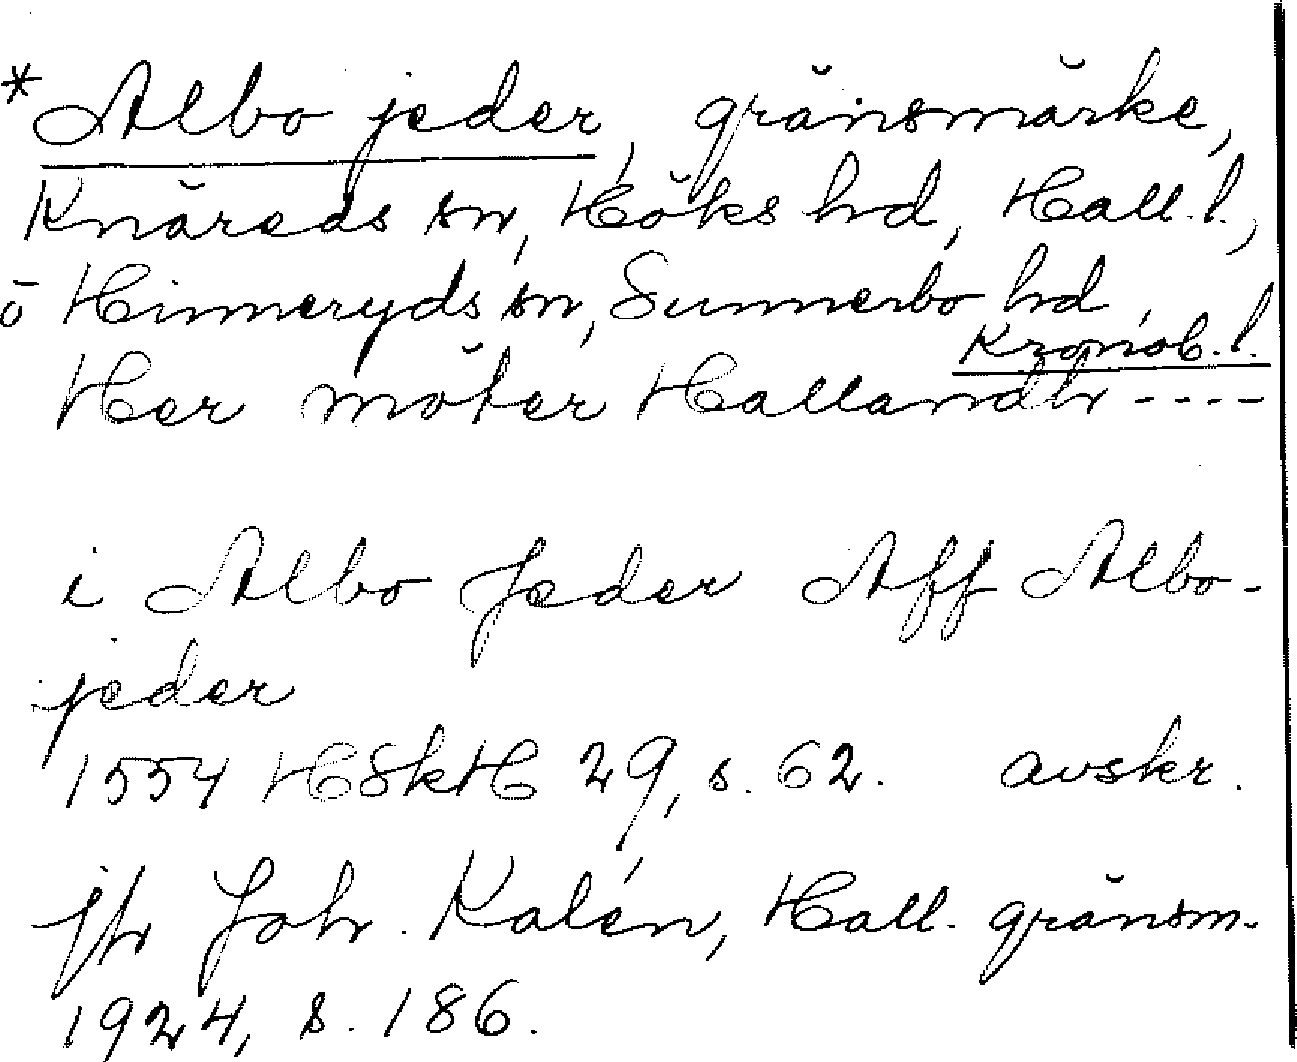 *Albo jeder, gränsmärke,
Knäreds sn, Höks hd, Hall. l.,
ō Hinneryds sn, Sunnerbo hd,
Kronob. l.
Her möter Hallandh ----
i Albo Jeder Aff Albo-
jeder
1554 HSkH 29, s. 62. avskr.
jfr Joh. Kalén, Hall. gränsm.
1924, s. 186.